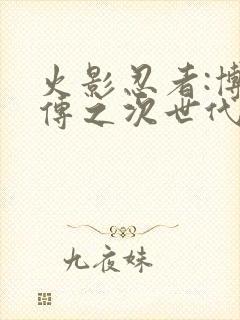 火影忍者:博
傳之次世代
九夜妹